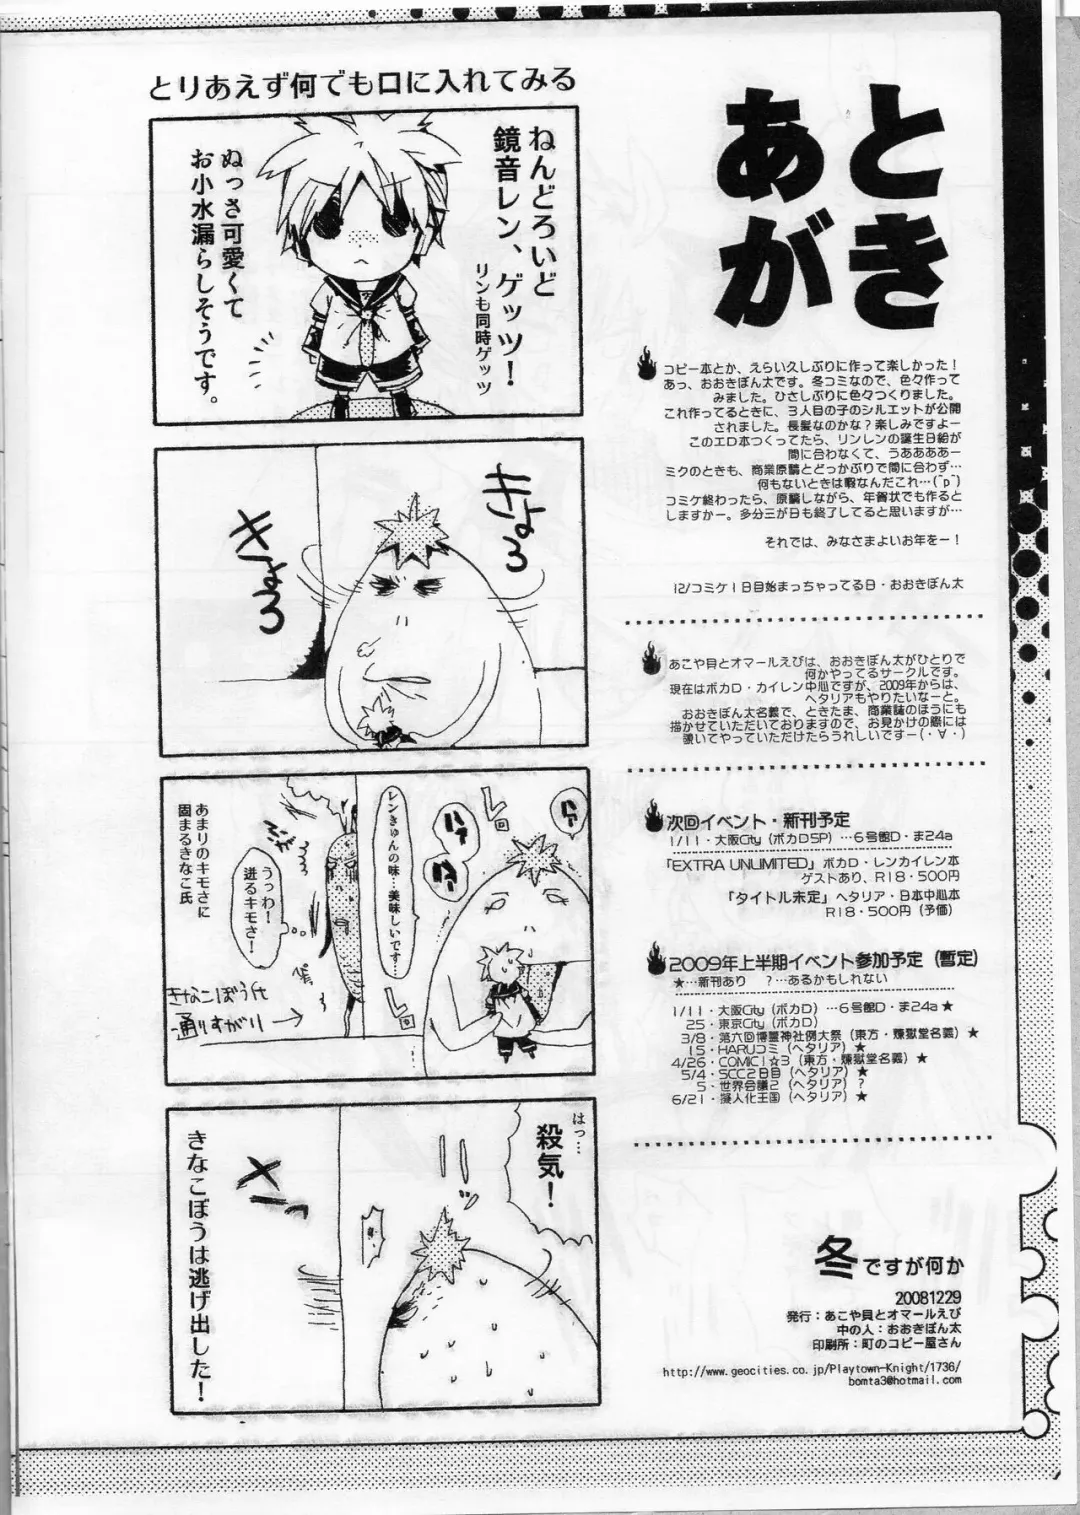 あとがき
コピー本とか、えらい久しぶりに作って楽しかった!
あっ、おおきぼん太です。冬コミなので、色々作って
みました。ひさしぶりに色々つくりました。
これ作ってるときに、3人目の子のシルエットが公開
されました。長髪なのかな?楽しみですよー
このエロ本つくってたら、リンレンの誕生日絵が
間に合わなくて、うああああー
ミクのときも、商業原稿とどっかぶりで間に合わず…
何もないときは暇なんだこれ…(¯p¯)
コミケ終わったら、原稿しながら、年賀状でも作ると
しますかー。多分三が日も終了してると思いますが…
それでは、みなさまよいお年をー!
12/コミケ1日目始まっちゃってる日・おおきぼん太
あこや貝とオマールえびは、おおきぼん太がひとりで
何かやってるサークルです。
現在はボカロ・カイレン中心ですが、2009年からは、
ヘタリアもやりたいなーと。
おおきぼん太名義で、ときたま、商業誌のほうにも
描かせていただいておりますので、お見かけの際には
覗いてやっていただけたらうれしいですー(・∀・)
次回イベント・新刊予定
1/11・大阪City(ボカロSP)…6号館D・ま24a
「EXTRA UNLIMITED」ボカロ・レンカイレン本
ゲストあり、R18・500円
「タイトル未定」ヘタリア・日本中心本
R18・500円(予価)
2009年上半期イベント参加予定(暫定)
★…新刊あり ?…あるかもしれない
1/11・大阪City(ボカロ)…6号館D・ま24a★
25・東京City(ボカロ)
3/8・第六回博麗神社例大祭(東方・煉獄堂名義)★
15・HARUコミ(ヘタリア)★
4/26・COMIC1☆3(東方・煉獄堂名義)★
5/4・SCC2日目(ヘタリア)★
5・世界会議2(ヘタリア)?
6/21・擬人化王国(ヘタリア)★
冬ですが何か
20081229
発行:あこや貝とオマールえび
中の人:おおきぼん太
印刷所:町のコピー屋さん
http://www.geocities.co.jp/Playtown-Knight/1736/
bomta3@hotmail.com
とりあえず何でも口に入れてみる
ねんどろいど
鏡音レン、ゲッツ!
リンも同時ゲッツ
ぬっさ可愛くて
お小水漏らしそうです。
きょろ
きょろ
ハァ
ハァ
ハァ
レロ
レンきゅんの味…美味しいです…
レロ
うっわ!
迸るキモさ!
あまりのキモさに
固まるきなこ氏
きなこぼう氏
通りすがり→
はっ…
殺気!
きなこぼうは逃げ出した!